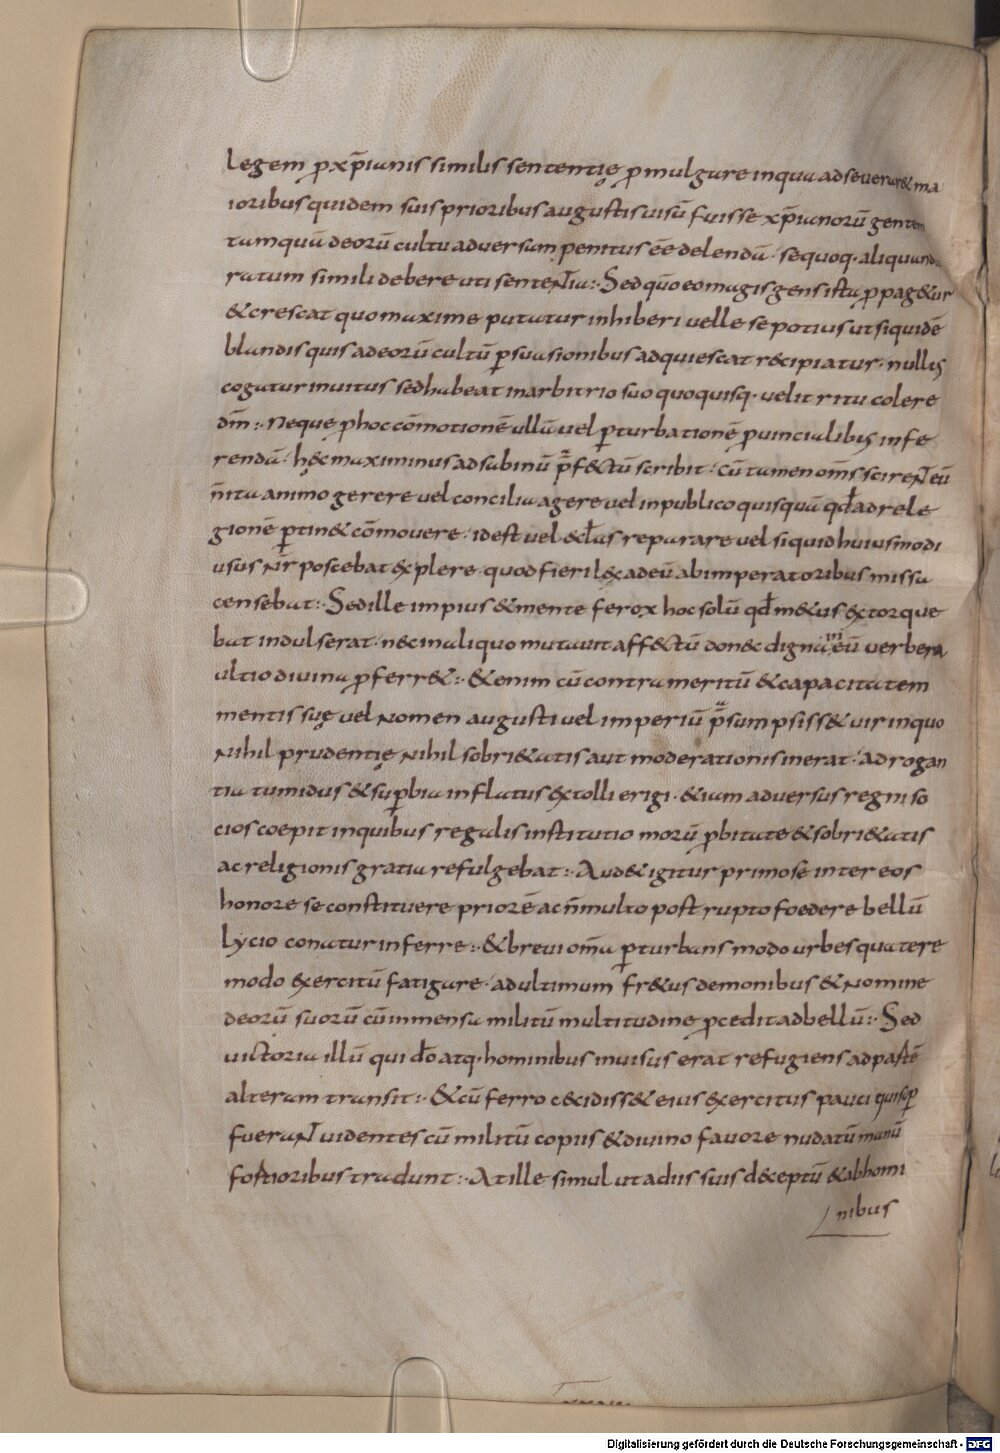 legem ꝓ xp̄ianis similis sententię ꝓmulgare in qua adseverar& ma
ioribus quidem suis prioribus augustis uisū fuisse xp̄ianorū gentem
tamquā deorū cultu adversam penitus eē delendā· sequoq· aliquando
ratum simili debere uti sententia:· Sed quo eo magis gens ista ꝓpag&ur
& crescat quo maxime putatur inhiberi velle se potius ut siquidē
blandis quis ad deorū cultū ꝑsuasionibus adquiescat recipiatur· nullus
cogatur invitus sed habeat in arbitrio suo quo quisq· velit ritu colere
dm̄:· Neque ꝓ hoc cōmotionē ullā vel ꝑturbationē ꝓvincialibus infe
rendā· hęc maximinus ad sabinū p̄fectū scribit· cū tamen om̄s scirent eū
n̄ ita animo gerere vel concilia agere vel in publico quisquā qđ ad rele
gionē ꝑtin& cōmovere· id est vel &łas reparare vel siquid huiusmodi
usus nr̄ poscebat explere· quod fieri l& ad eū ab imperatoribus missa
censebat:· Sed ille impius & mente ferox hoc solū qđ m&us extorque
bat indulserat· nec in aliquo mutavit affectū donec digna in eū verbera
ultio divina ꝓferr&:· &enim cū contra meritū & capacitatem
mentis suę vel nomen augusti vel imperiū p̄sumpsiss& vir in quo
nihil prudentię nihil sobri&atis aut moderationis inerat· adrogan
tia tumidus & suꝑbia inflatus extolli erigi· &iam adversus regni so
cios coepit in quibus regalis institutio morū ꝓbitate & sobri&atis
ac religionis gratia refulgebat:· Aud& igitur primo se inter eos
honore se constituere priorē ac n̄ multo post rupto foedere bellū
lycio conatur inferre:· & brevi om̄a ꝑturbans modo urbes quatere
modo exercitū fatigare· ad ultimum fr&us demonibus & nomine
deorū suorū cū inmensa militū multitudine ꝓcedit ad bellū:· Sed
victoria illū qui dō atq· hominibus invisus erat refugiens ad partē
alteram transit:· & cū ferro cecidiss& eius exercitus pauci qui suꝑ
fuerant videntes cū militū copiis & divino favore nudatū manū
fortioribus tradunt:· At ille simul ut a diis suis deceptū & ab homi
nibus